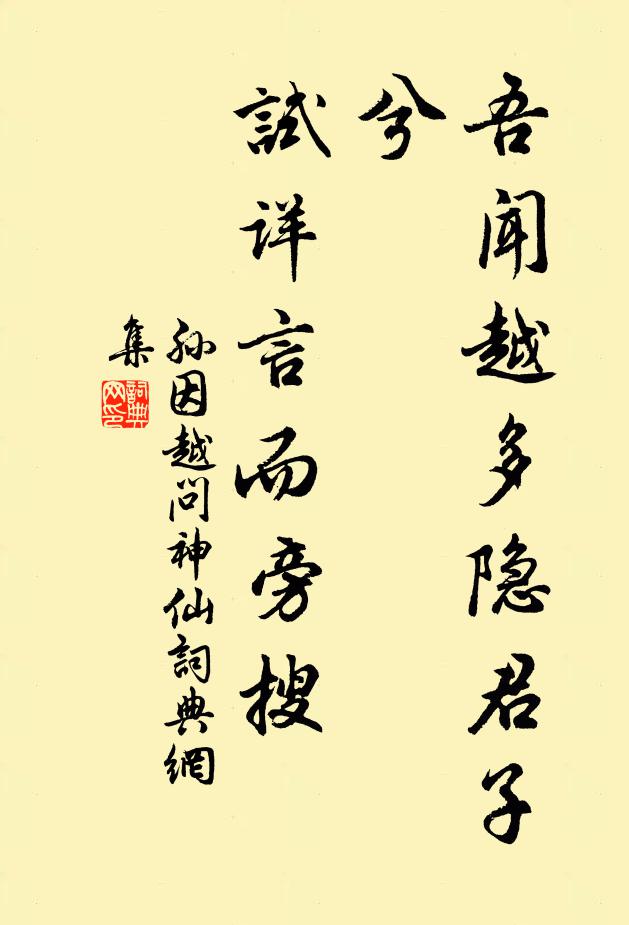 吾聞越多隐君子
兮
試详言而旁搜
孙因越问神仙詞典網
集
詞典网印